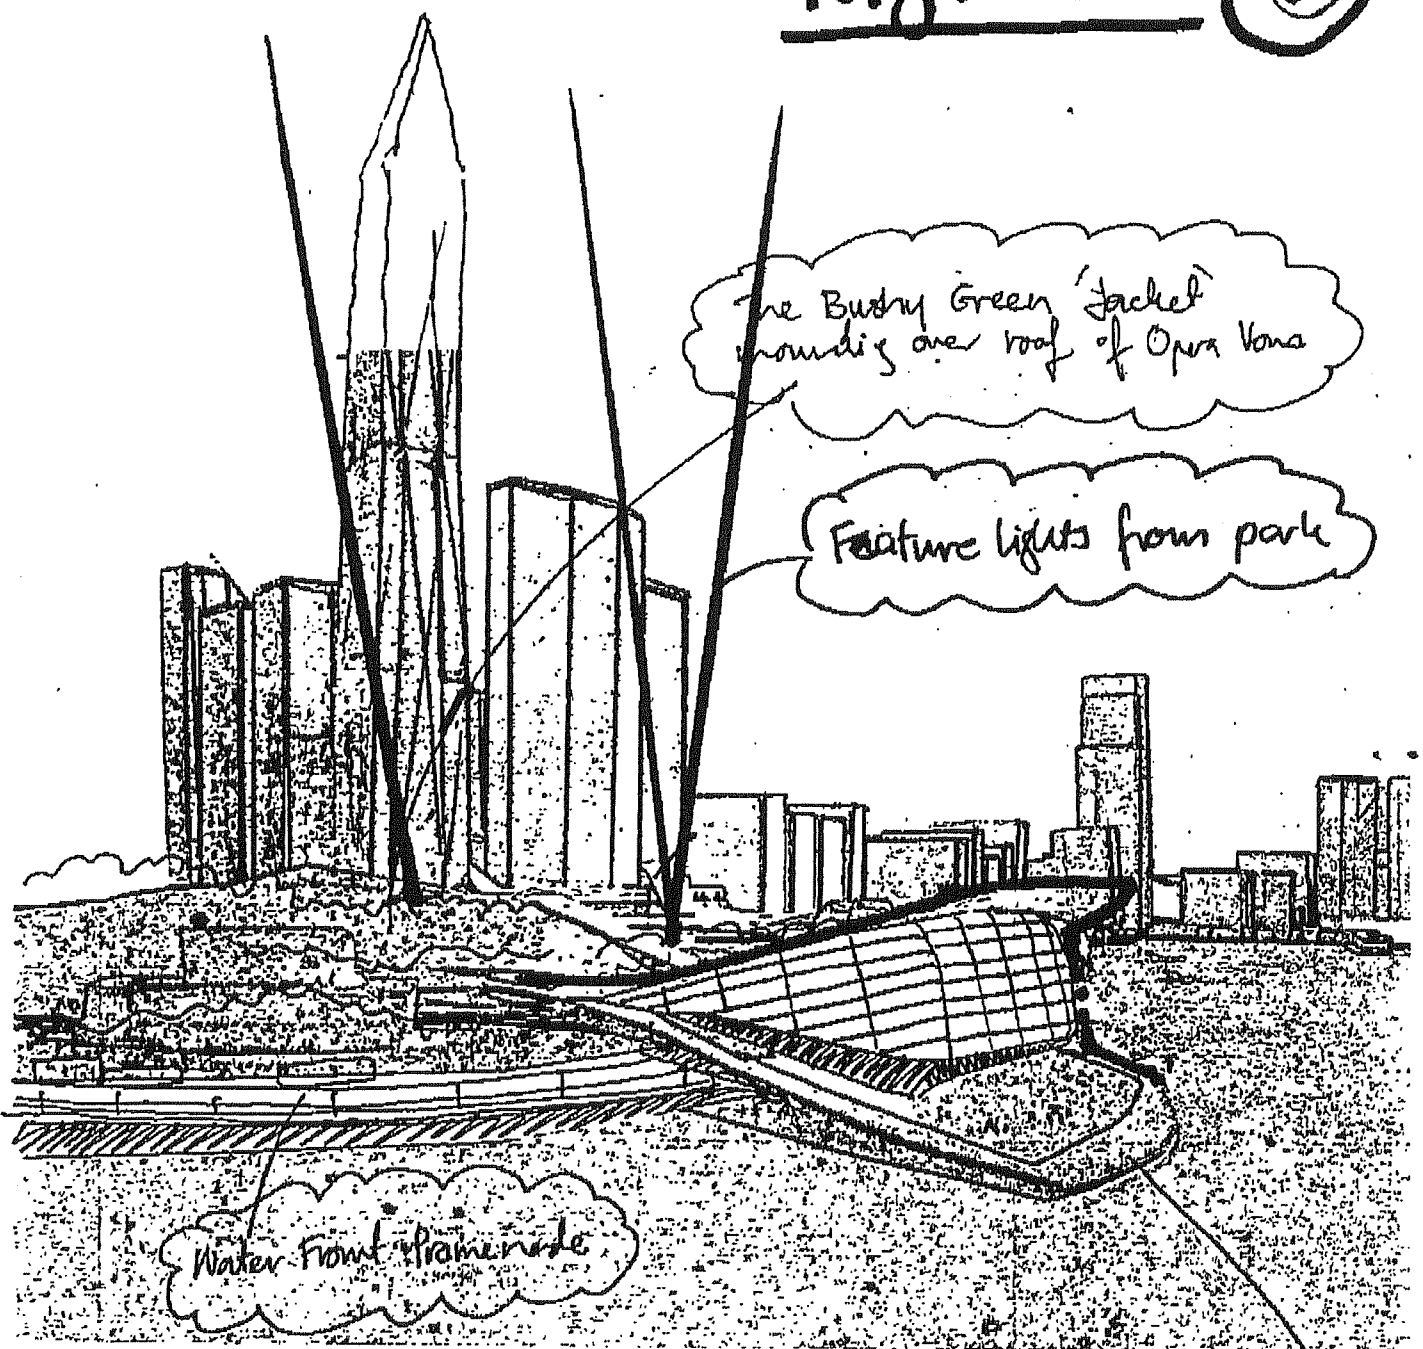 The Bushy Green 'Jacket'
mounding over roof of Opera
Feature lights from park
Water Front Promenade